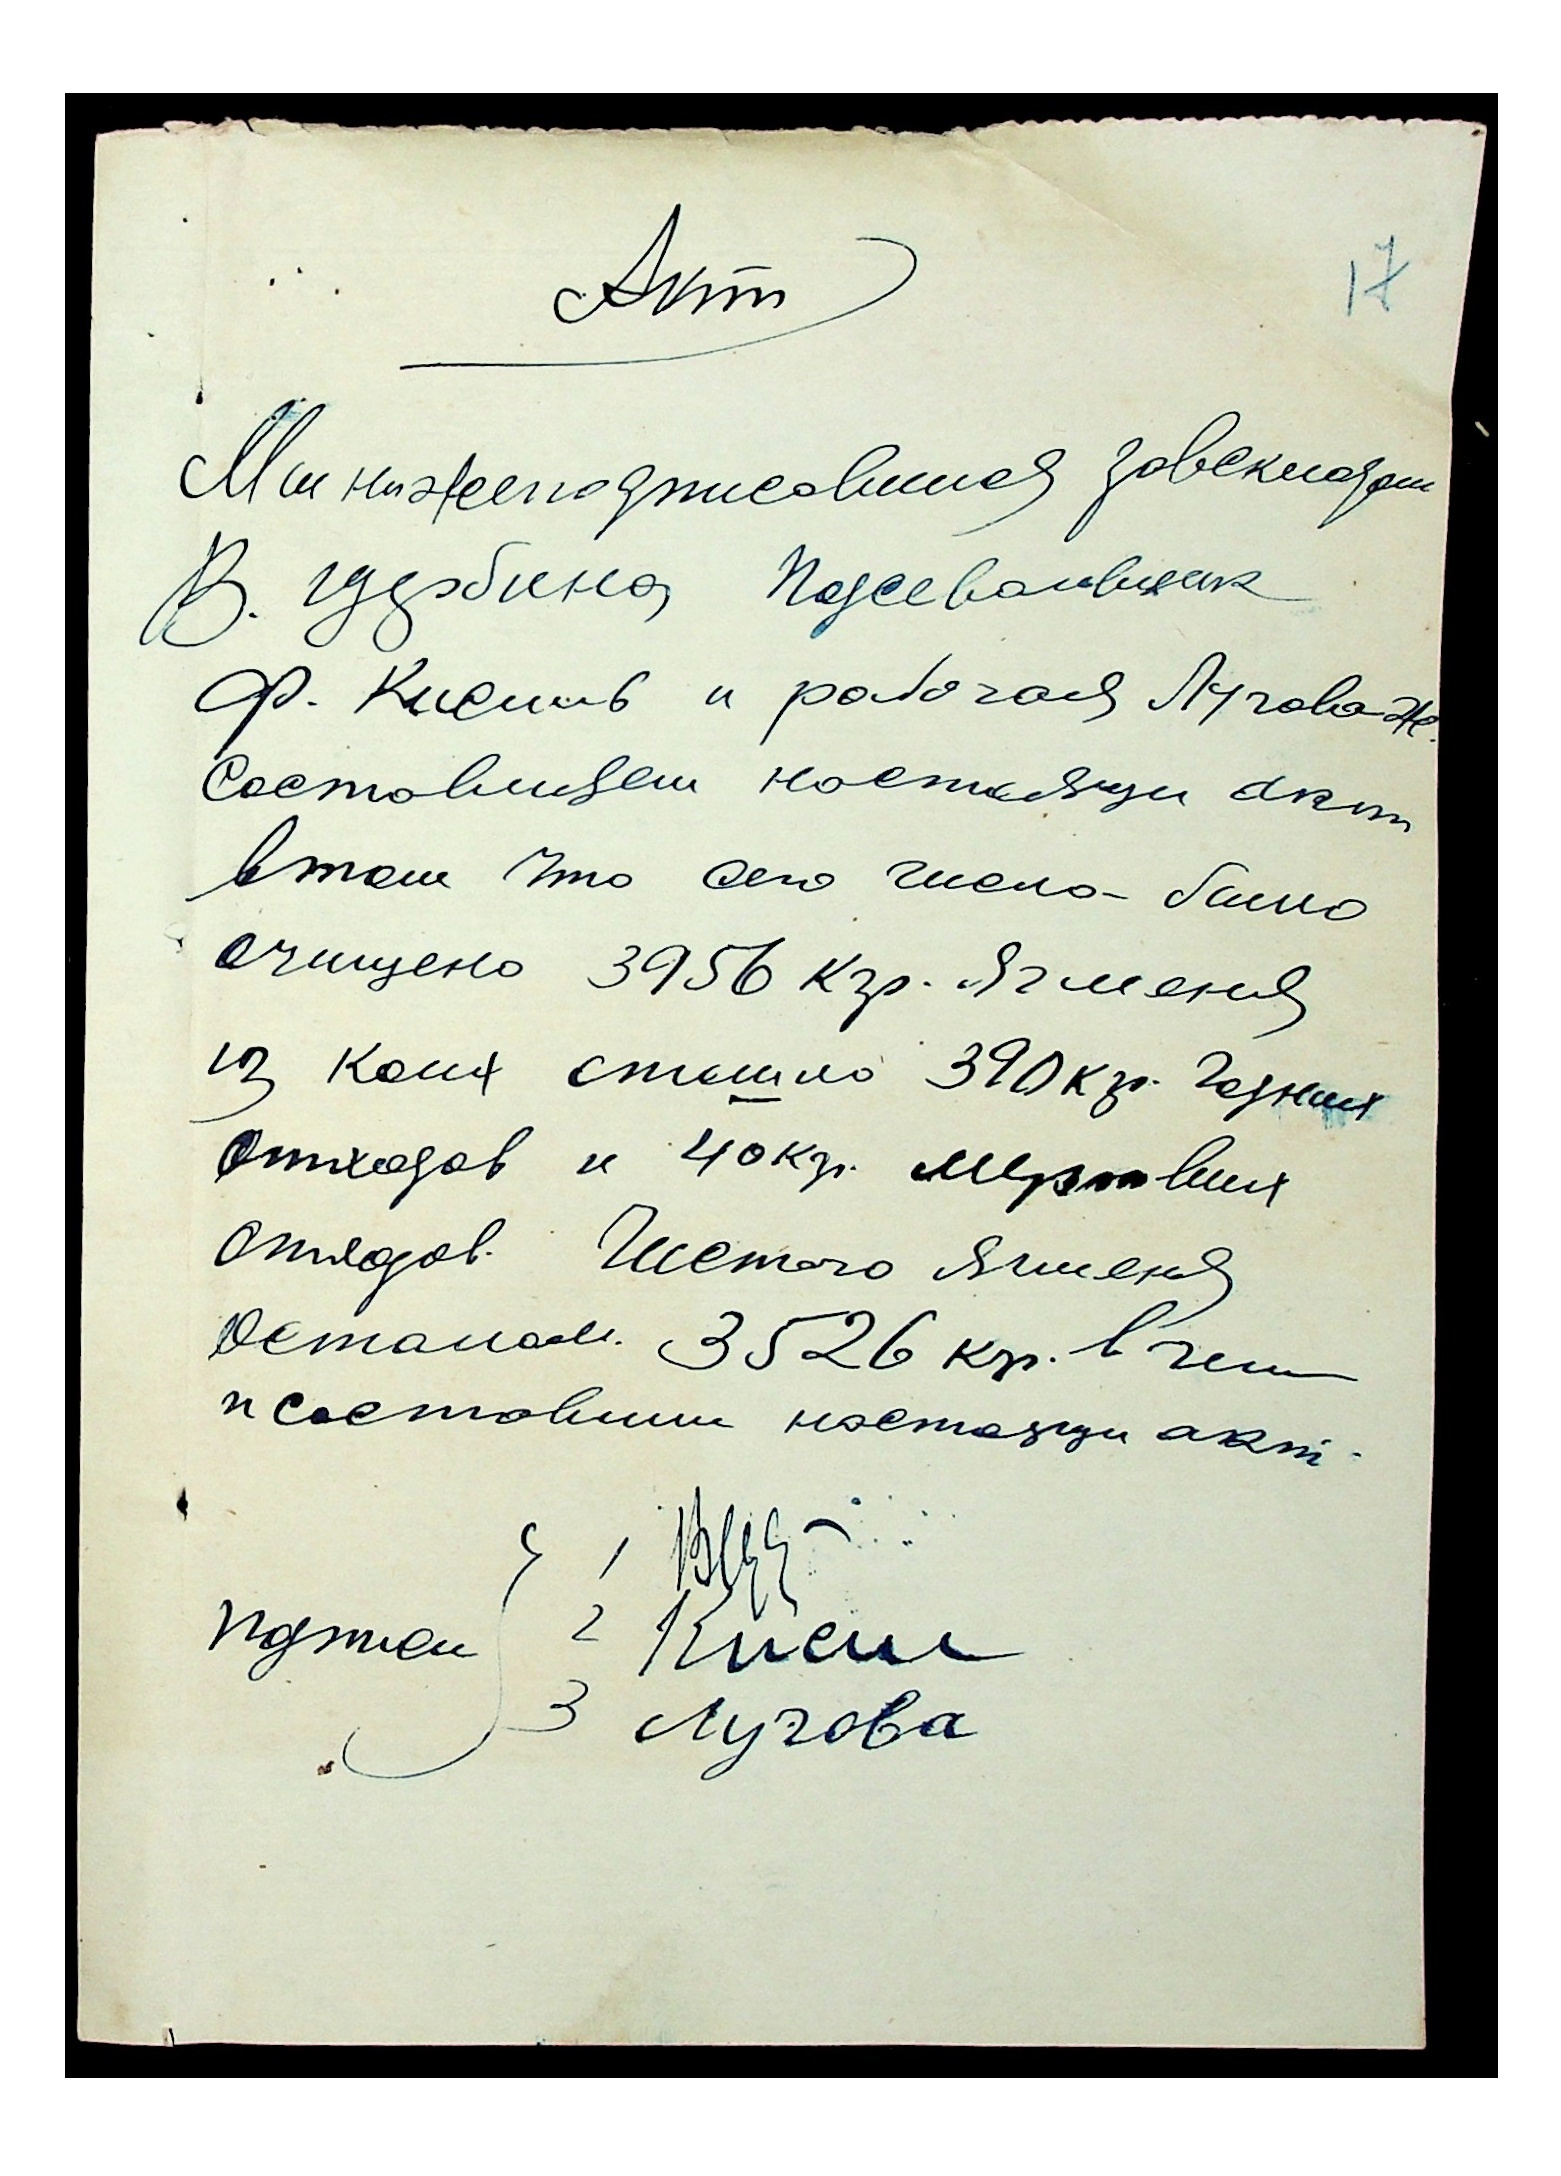 Акт
17
Мы нижеподписавшиеся завскладом
В. Щербина, Подсевальщик
Ф. Кисиль и рабочая Лугова Ж.
составивщем настоящи акт
в том что сего число было
очищено 3956 кгр. Ячменя
из коих отошло 390 кгр. Годных
отходов и 40 кгр. мертвых
отходов. Чистого Ячменя
осталось. 3526 кгр. в чем
и составили настоящи акт.
Подписи 1
2 Кисил
3 Лугова